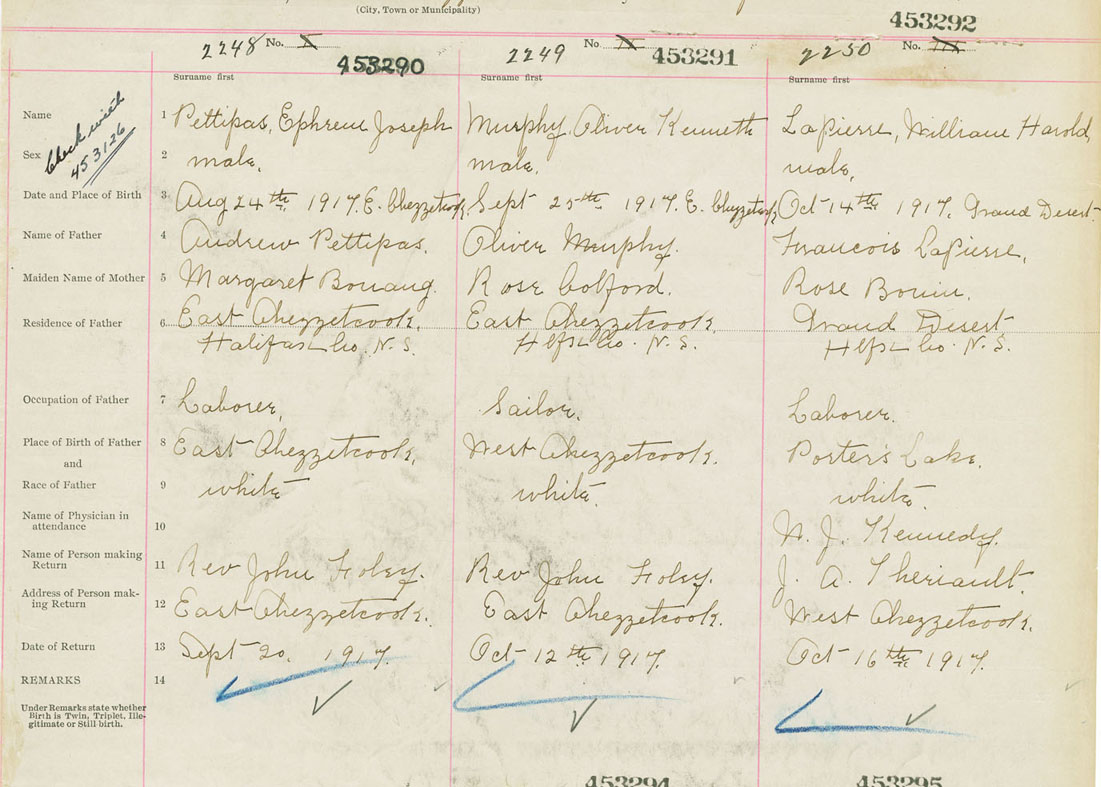 (City, Town or Municipality)
453292
2248 No. X 453290
2249 No. IX 453291
2250 No. III
Surname first Surname first Surname first
Check with 453126
Name 1 Pettipas, Ephrem Joseph Murphy, Oliver Kenneth LaPierre, William Harold,
Sex 2 male. male. male.
Date and Place of Birth 3 Aug 24th 1917. E. Chezzetcook, Sept 25th 1917. E. Chezzetcook, Oct 14th 1917. Grand Desert.
Name of Father 4 Andrew Pettipas. Oliver Murphy. Francois LaPierre.
Maiden Name of Mother 5 Margaret Bonang. Rose Colford. Rose Bonin.
Residence of Father 6 East Chezzetcook. East Chezzetcook. Grand Desert
Halifax Co. N.S. Hfx Co. N.S. Hfx Co. N.S.
Occupation of Father 7 Laborer. Sailor. Laborer.
Place of Birth of Father 8 East Chezzetcook. West Chezzetcook. Porter's Lake.
and
Race of Father 9 white white. white.
Name of Physician in
attendance 10 W. J. Kennedy.
Name of Person making
Return 11 Rev John Foley. Rev John Foley. J. A. Theriault.
Address of Person mak-
ing Return 12 East Chezzetcook. East Chezzetcook. West Chezzetcook.
Date of Return 13 Sept 20. 1917. Oct 12th 1917. Oct 16th 1917.
REMARKS 14
Under Remarks state whether
Birth is Twin, Triplet, Ille-
gitimate or Still birth.
453294 453295